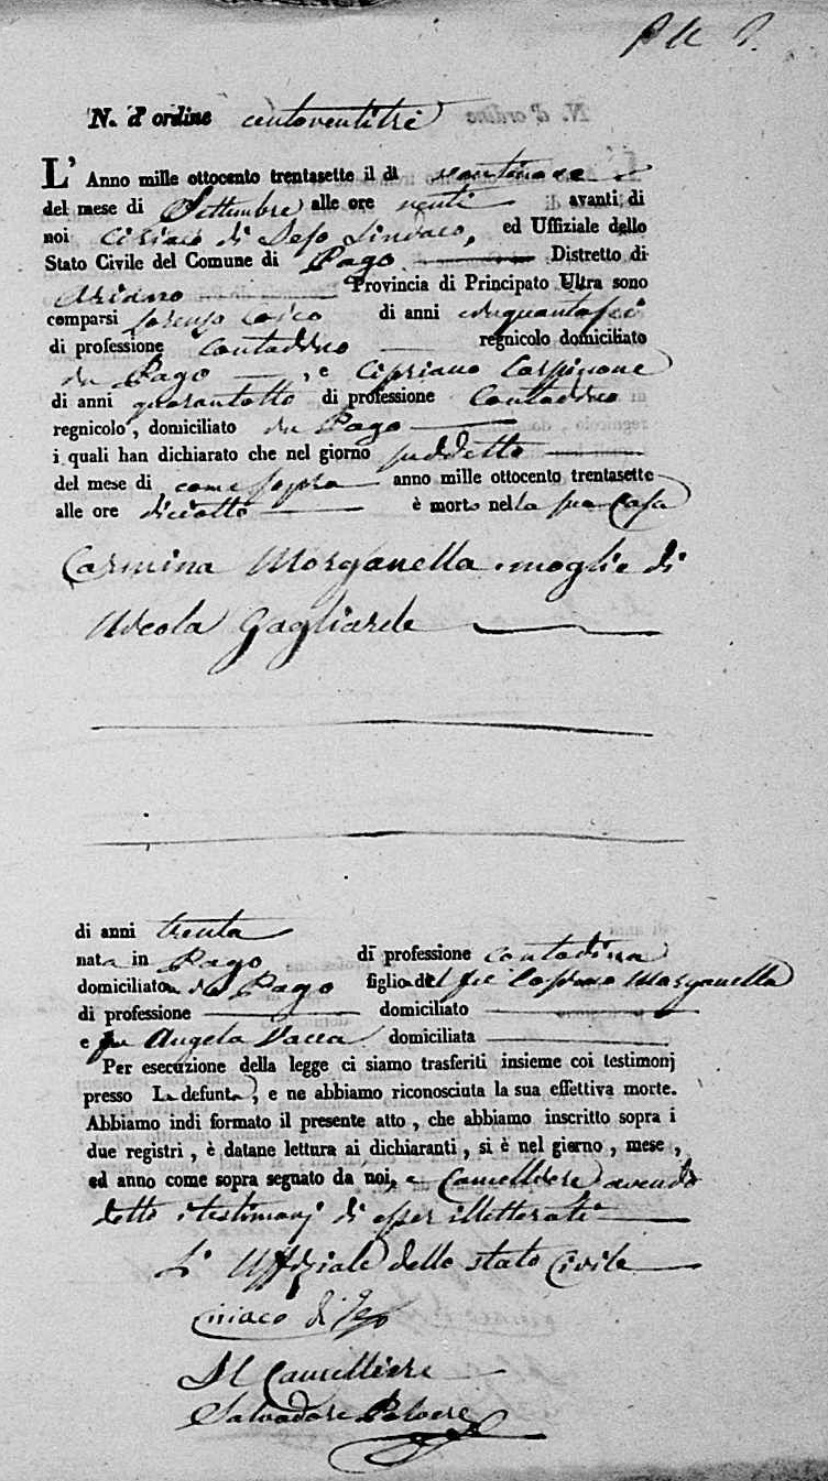 N. d'ordine centoventitre
L' Anno mille ottocento trentasette il dì ventinove
del mese di Settembre alle ore venti avanti di
noi Ciriaco di Sefo Sindaco, ed Uffiziale dello
Stato Civile del Comune di Pago Distretto di
Ariano Provincia di Principato Ultra sono
comparsi Lorenzo Cosco di anni cinquantasei
di professione Contadino regnicolo domiciliato
in Pago, e Cipriano Carpinone
di anni quarantotto di professione Contadino
regnicolo, domiciliato in Pago
i quali han dichiarato che nel giorno suddetto
del mese di come sopra anno mille ottocento trentasette
alle ore diciotto è morto nella sua Casa
Carmina Morganella moglie di
Nicola Gagliarde
di anni trenta
nata in Pago di professione contadina
domiciliato in Pago figlio del fu Morganella
di professione domiciliato
e fu Angela Vacca domiciliata
Per esecuzione della legge ci siamo trasferiti insieme coi testimonj
presso La defunta, e ne abbiamo riconosciuta la sua effettiva morte.
Abbiamo indi formato il presente atto, che abbiamo inscritto sopra i
due registri, è datane lettura ai dichiaranti, si è nel giorno, mese,
ed anno come sopra segnato da noi, e Cancelliere avendo
detto i testimonj di esser illetterati
L' Uffiziale dello stato Civile
Ciriaco di
Il Cancelliere
Salvadore